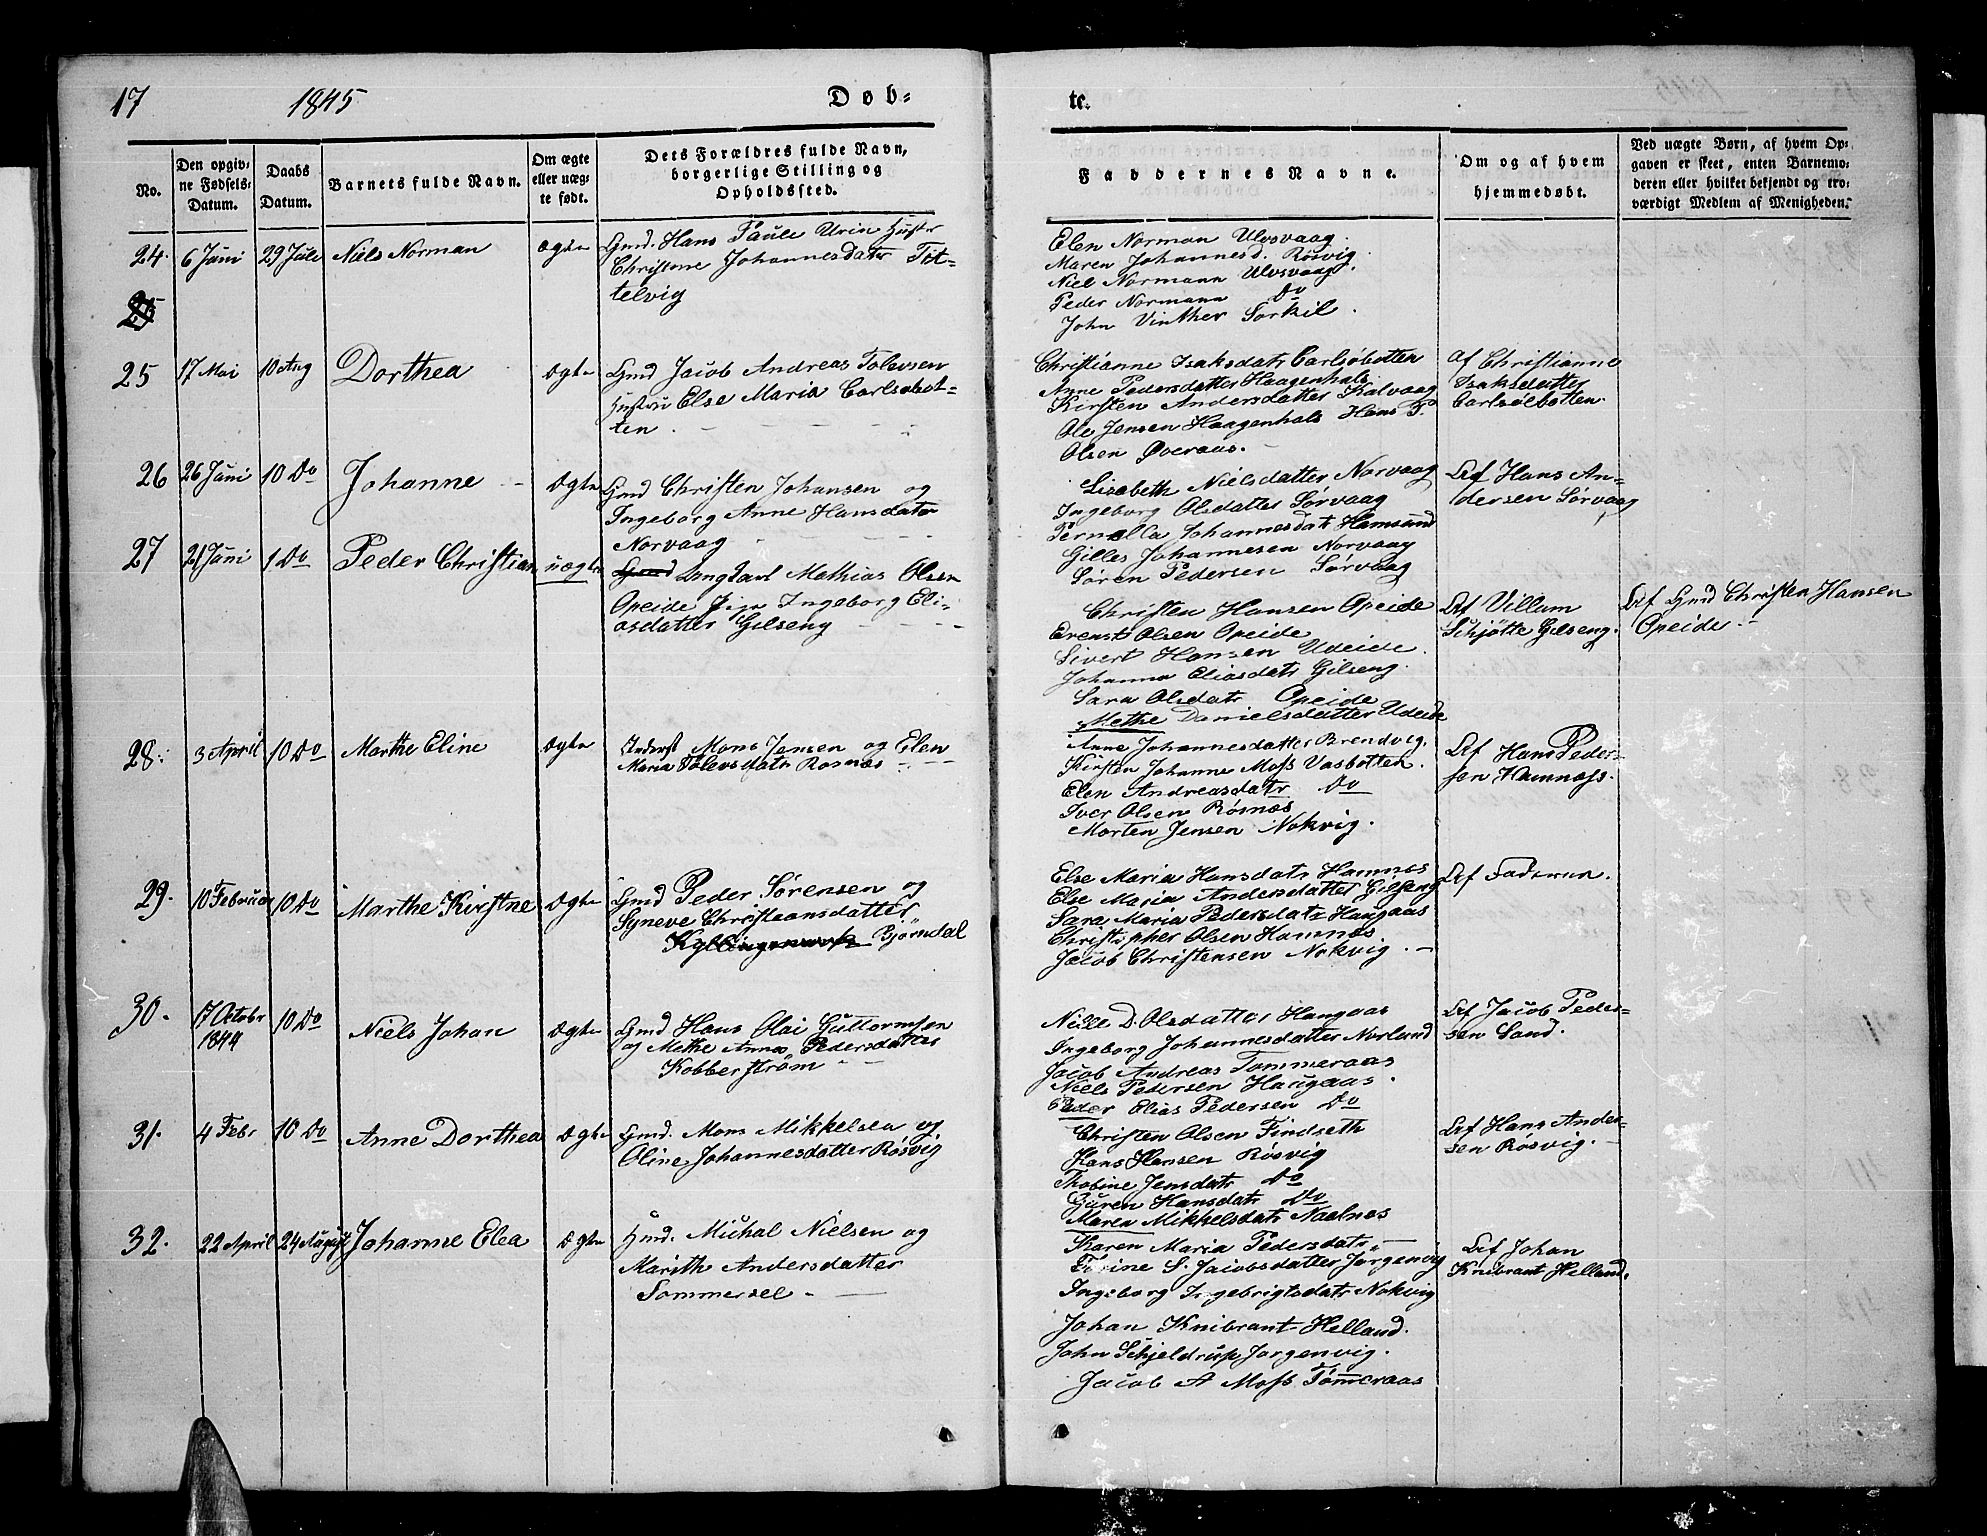 17
1845
Døb-
te.
No.
Den opgiv-
ne Fødsels-
Datum.
Daabs
Datum.
Barnets fulde Navn.
Om ægte
eller uæg-
te født.
Dets Forældres fulde Navn,
borgerlige Stilling og
Opholdssted.
Faddernes Navne.
Om og af hvem
hjemmedøbt.
Ved uægte Børn, af hvem Op-
gaven er skeet, enten Barnemo-
deren eller hvilket bekjendt og tro-
værdigt Medlem af Menigheden.
24. 6 Juni 29 Juli Niels Norman ægte
Gmd. Hans Paule Urin Hustr
Christine Johannesdater Tit-
telvig
Elen Norman Ulvsvaag.
Maren Johannesd. Røsvig
Niel Normann Ulvsvaag.
Peder Normann Do
John Vinther Sorkil.
25
25 17 Mai 10 Aug Dorthea ægte
Gmd Jacob Andreas Tolevsen
Hustru Else Maria Carlsøbot-
ten.
Christianne Isaksdatr Carlsøbotten
Anne Pedersdatter Haagenhals
Kirsten Andersdatter Kalvaag
Ole Jensen Haagenhals Hans P.
Olsen Øveraas.
af Christianne
Isaksdatter
Carlsølbotten.
26 26 Juni 10 Do Johanne Ægte
Gmd Christen Johansen og
Ingeborg Anne Hansdater
Norvaag
Lisebeth Nielsdatter Norvaag
Ingeborg Olsdatter Sørvaag
Pernella Johannesdatr Hamsund
Gilles Johannesen Norvaag
Søren Pedersen Sørvaag
Af Hans An-
dersen Sørvaag
27 21 Juni 1 Do Peder Christian uægte
Gmd Ungkarl Mathias Olsen
Opeide Pige Ingeborg Eli-
asdatter Gilseng
Christen Hansen Opeide
Erenst Olsen Opeide
Sivert Hansen Udeide.
Johanna Eliasdatr Gilseng.
Sara Olsdatr Opeide
Methe Danielsdatter Udeide
Af Villum
Schjøtte Gilseng.
Af Gmd Christen Hansen
Opeide
28. 3 April 10 Do Marthe Eline ægte
Inderst Mons Jensen og Elen
Maria Tolevsdatr Rosnæs
Anne Johannesdatter Brendvig.
Kirsten Johanne Moss Vasbotten.
Elen Andreasdatr Do
Iver Olsen Røsnæs
Morten Jensen Nokvig.
Af Hans Peder-
sen Hamnæss.
29. 10 Februar 10 Do Marthe Kirstne Ægte
Gmd Peder Sørensen og
Synneve Christiansdatter
Bjørndal
Else Maria Hansdatr Hamnæs
Else Maria Andersdatter Gilseng
Sara Maria Pedersdatr Haugaas
Christopher Olsen Hamnæs
Jacob Christensen Nokvig.
Af Faderen.
30. 17 Octobr
1844
10 Do Niels Johan Ægte
Gmd Hans Olai Guttormsen
og Methe Anna Pedersdatter
Kobberstrøm
Nille D. Olsdatter Haugaas
Ingeborg Johannesdatter Norlund
Jacob Andreas Tømmeraas
Niels Pedersen Haugaas.
Peder Elias Pedersen Do
Af Jacob Peder-
sen Sand.
31. 4 Febr 10 Do Anne Dorthea Ægte
Gmd. Mons Mikkelsen og
Oline Johannesdatter Røsvig
Christen Olsen Findseth
Hans Hansen Røsvig
Thobine Jensdatr Do
Guren Hansdatr Do
Maren Mikkelsdatr Naalnes
Af Hans Ander-
sen Røsvig.
32. 22 April 24 August Johanne Elea Ægte
Gmd. Michal Nielsen og
Marith Andersdatter
Sommersel
Karen Maria Pedersdatr
Torine S. Jacobsdatter Jørgenvig
Ingeborg Ingebrigtsdatr Nokvig
Johan Knibrant Helland.
John Schjeldrup Jørgenvig.
Jacob A Moss Tømmeraas
Af Johan
Knibrant Helland.